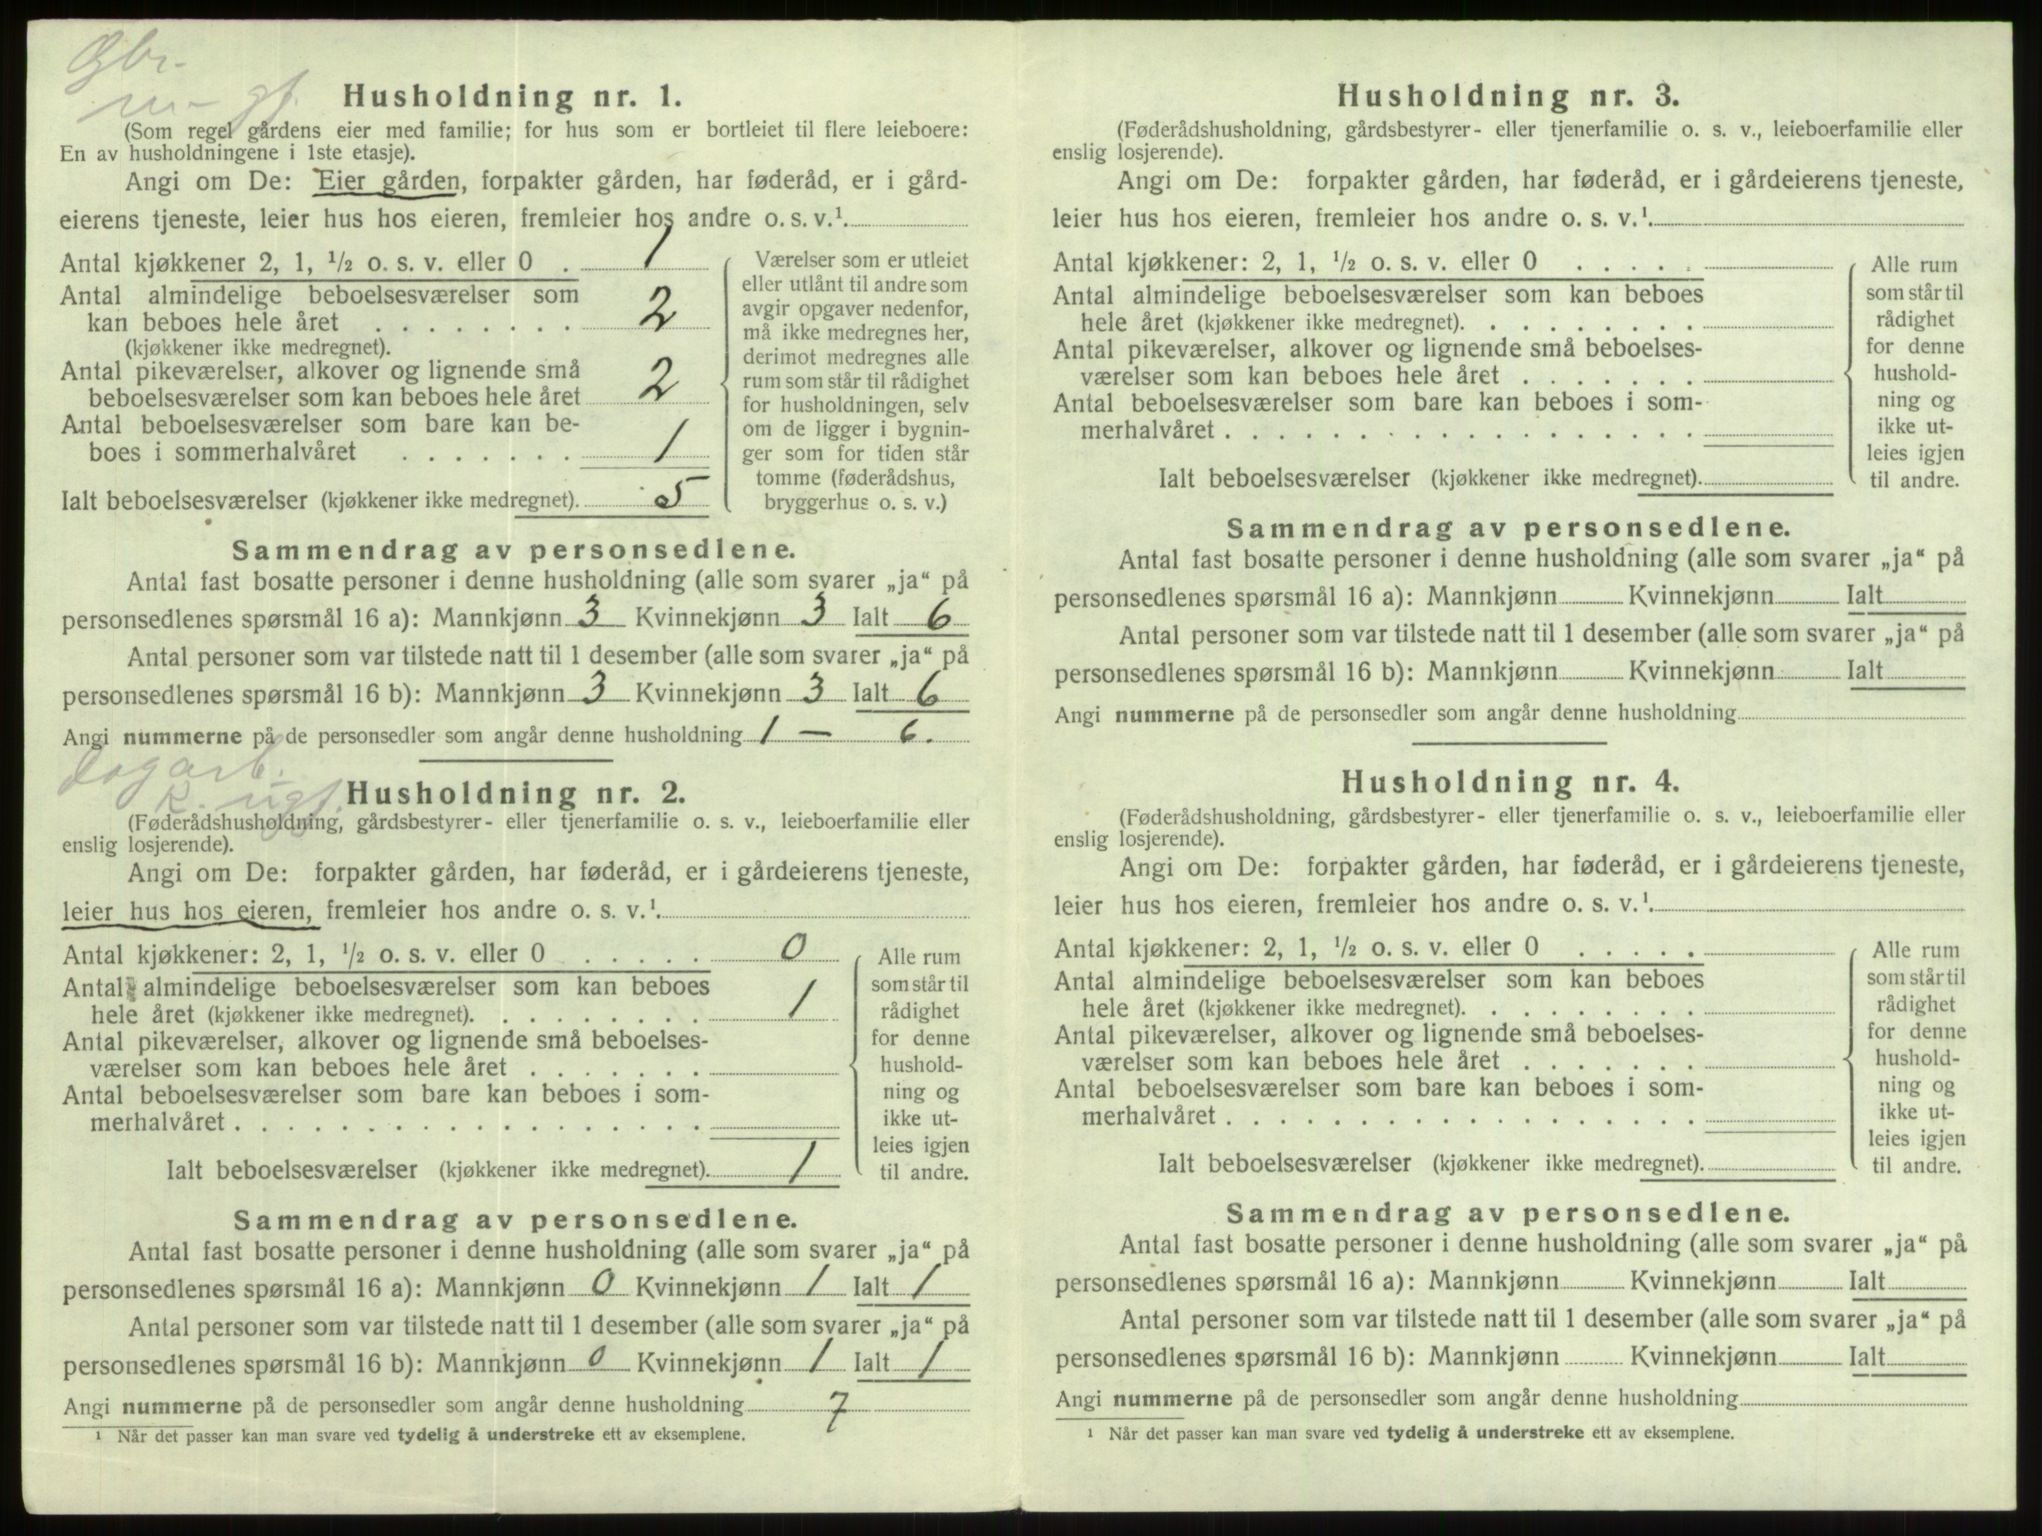 Gbr.
m - gf.
Husholdning nr. 1.
(Som regel gårdens eier med familie; for hus som er bortleiet til flere leieboere:
En av husholdningene i 1ste etasje).
Angi om De: Eier gården, forpakter gården, har føderåd, er i gård-
eierens tjeneste, leier hus hos eieren, fremleier hos andre o. s. v.¹.
Antal kjøkkener 2, 1, ½ o. s. v. eller 0 . 1
Antal almindelige beboelsesværelser som
kan beboes hele året . . . . . . . . 2
(kjøkkener ikke medregnet).
Antal pikeværelser, alkover og lignende små
beboelsesværelser som kan beboes hele året 2
Antal beboelsesværelser som bare kan be-
boes i sommerhalvåret . . . . . . . 1
Ialt beboelsesværelser (kjøkkener ikke medregnet). 5
Værelser som er utleiet
eller utlånt til andre som
avgir opgaver nedenfor,
må ikke medregnes her,
derimot medregnes alle
rum som står til rådighet
for husholdningen, selv
om de ligger i bygnin-
ger som for tiden står
tomme (føderådshus,
bryggerhus o. s. v.)
Sammendrag av personsedlene.
Antal fast bosatte personer i denne husholdning (alle som svarer „ja“ på
personsedlenes spørsmål 16 a): Mannkjønn 3 Kvinnekjønn 3 Ialt 6
Antal personer som var tilstede natt til 1 desember (alle som svarer „ja“ på
personsedlenes spørsmål 16 b): Mannkjønn 3 Kvinnekjønn 3 Ialt 6
Angi nummerne på de personsedler som angår denne husholdning 1 — 6.
Dagarb.
K. ugf.
Husholdning nr. 2.
(Føderådshusholdning, gårdsbestyrer- eller tjenerfamilie o. s. v., leieboerfamilie eller
enslig losjerende).
Angi om De: forpakter gården, har føderåd, er i gårdeierens tjeneste,
leier hus hos eieren, fremleier hos andre o. s. v.¹.
Antal kjøkkener: 2, 1, ½ o. s. v. eller 0 . . . . . 0
Antal almindelige beboelsesværelser som kan beboes
hele året (kjøkkener ikke medregnet). . . . . . . . . 1
Antal pikeværelser, alkover og lignende små beboelses-
værelser som kan beboes hele året . . . . . . .
Antal beboelsesværelser som bare kan beboes i som-
merhalvåret . . . . . . . . . . . . . . . . . .
Ialt beboelsesværelser (kjøkkener ikke medregnet). 1
Alle rum
som står til
rådighet
for denne
hushold-
ning og
ikke ut-
leies igjen
til andre.
Sammendrag av personsedlene.
Antal fast bosatte personer i denne husholdning (alle som svarer „ja“ på
personsedlenes spørsmål 16 a): Mannkjønn 0 Kvinnekjønn 1 Ialt 1
Antal personer som var tilstede natt til 1 desember (alle som svarer „ja“ på
personsedlenes spørsmål 16 b): Mannkjønn 0 Kvinnekjønn 1 Ialt 1
Angi nummerne på de personsedler som angår denne husholdning 7
¹ Når det passer kan man svare ved tydelig å understreke ett av eksemplene.
Husholdning nr. 3.
(Føderådshusholdning, gårdsbestyrer- eller tjenerfamilie o. s. v., leieboerfamilie eller
enslig losjerende).
Angi om De: forpakter gården, har føderåd, er i gårdeierens tjeneste,
leier hus hos eieren, fremleier hos andre o. s. v.¹.
Antal kjøkkener: 2, 1, ½ o. s. v. eller 0 . . . . .
Antal almindelige beboelsesværelser som kan beboes
hele året (kjøkkener ikke medregnet). . . . . . . . .
Antal pikeværelser, alkover og lignende små beboelses-
værelser som kan beboes hele året . . . . . . .
Antal beboelsesværelser som bare kan beboes i som-
merhalvåret . . . . . . . . . . . . . . . . . .
Ialt beboelsesværelser (kjøkkener ikke medregnet).
Alle rum
som står til
rådighet
for denne
hushold-
ning og
ikke ut-
leies igjen
til andre.
Sammendrag av personsedlene.
Antal fast bosatte personer i denne husholdning (alle som svarer „ja“ på
personsedlenes spørsmål 16 a): Mannkjønn Kvinnekjønn Ialt
Antal personer som var tilstede natt til 1 desember (alle som svarer „ja“ på
personsedlenes spørsmål 16 b): Mannkjønn Kvinnekjønn Ialt
Angi nummerne på de personsedler som angår denne husholdning
Husholdning nr. 4.
(Føderådshusholdning, gårdsbestyrer- eller tjenerfamilie o. s. v., leieboerfamilie eller
enslig losjerende).
Angi om De: forpakter gården, har føderåd, er i gårdeierens tjeneste,
leier hus hos eieren, fremleier hos andre o. s. v.¹.
Antal kjøkkener: 2, 1, ½ o. s. v. eller 0 . . . . .
Antal almindelige beboelsesværelser som kan beboes
hele året (kjøkkener ikke medregnet). . . . . . . . .
Antal pikeværelser, alkover og lignende små beboelses-
værelser som kan beboes hele året . . . . . . .
Antal beboelsesværelser som bare kan beboes i som-
merhalvåret . . . . . . . . . . . . . . . . . .
Ialt beboelsesværelser (kjøkkener ikke medregnet).
Alle rum
som står til
rådighet
for denne
hushold-
ning og
ikke ut-
leies igjen
til andre.
Sammendrag av personsedlene.
Antal fast bosatte personer i denne husholdning (alle som svarer „ja“ på
personsedlenes spørsmål 16 a): Mannkjønn Kvinnekjønn Ialt
Antal personer som var tilstede natt til 1 desember (alle som svarer „ja“ på
personsedlenes spørsmål 16 b): Mannkjønn Kvinnekjønn Ialt
Angi nummerne på de personsedler som angår denne husholdning
¹ Når det passer kan man svare ved tydelig å understreke ett av eksemplene.